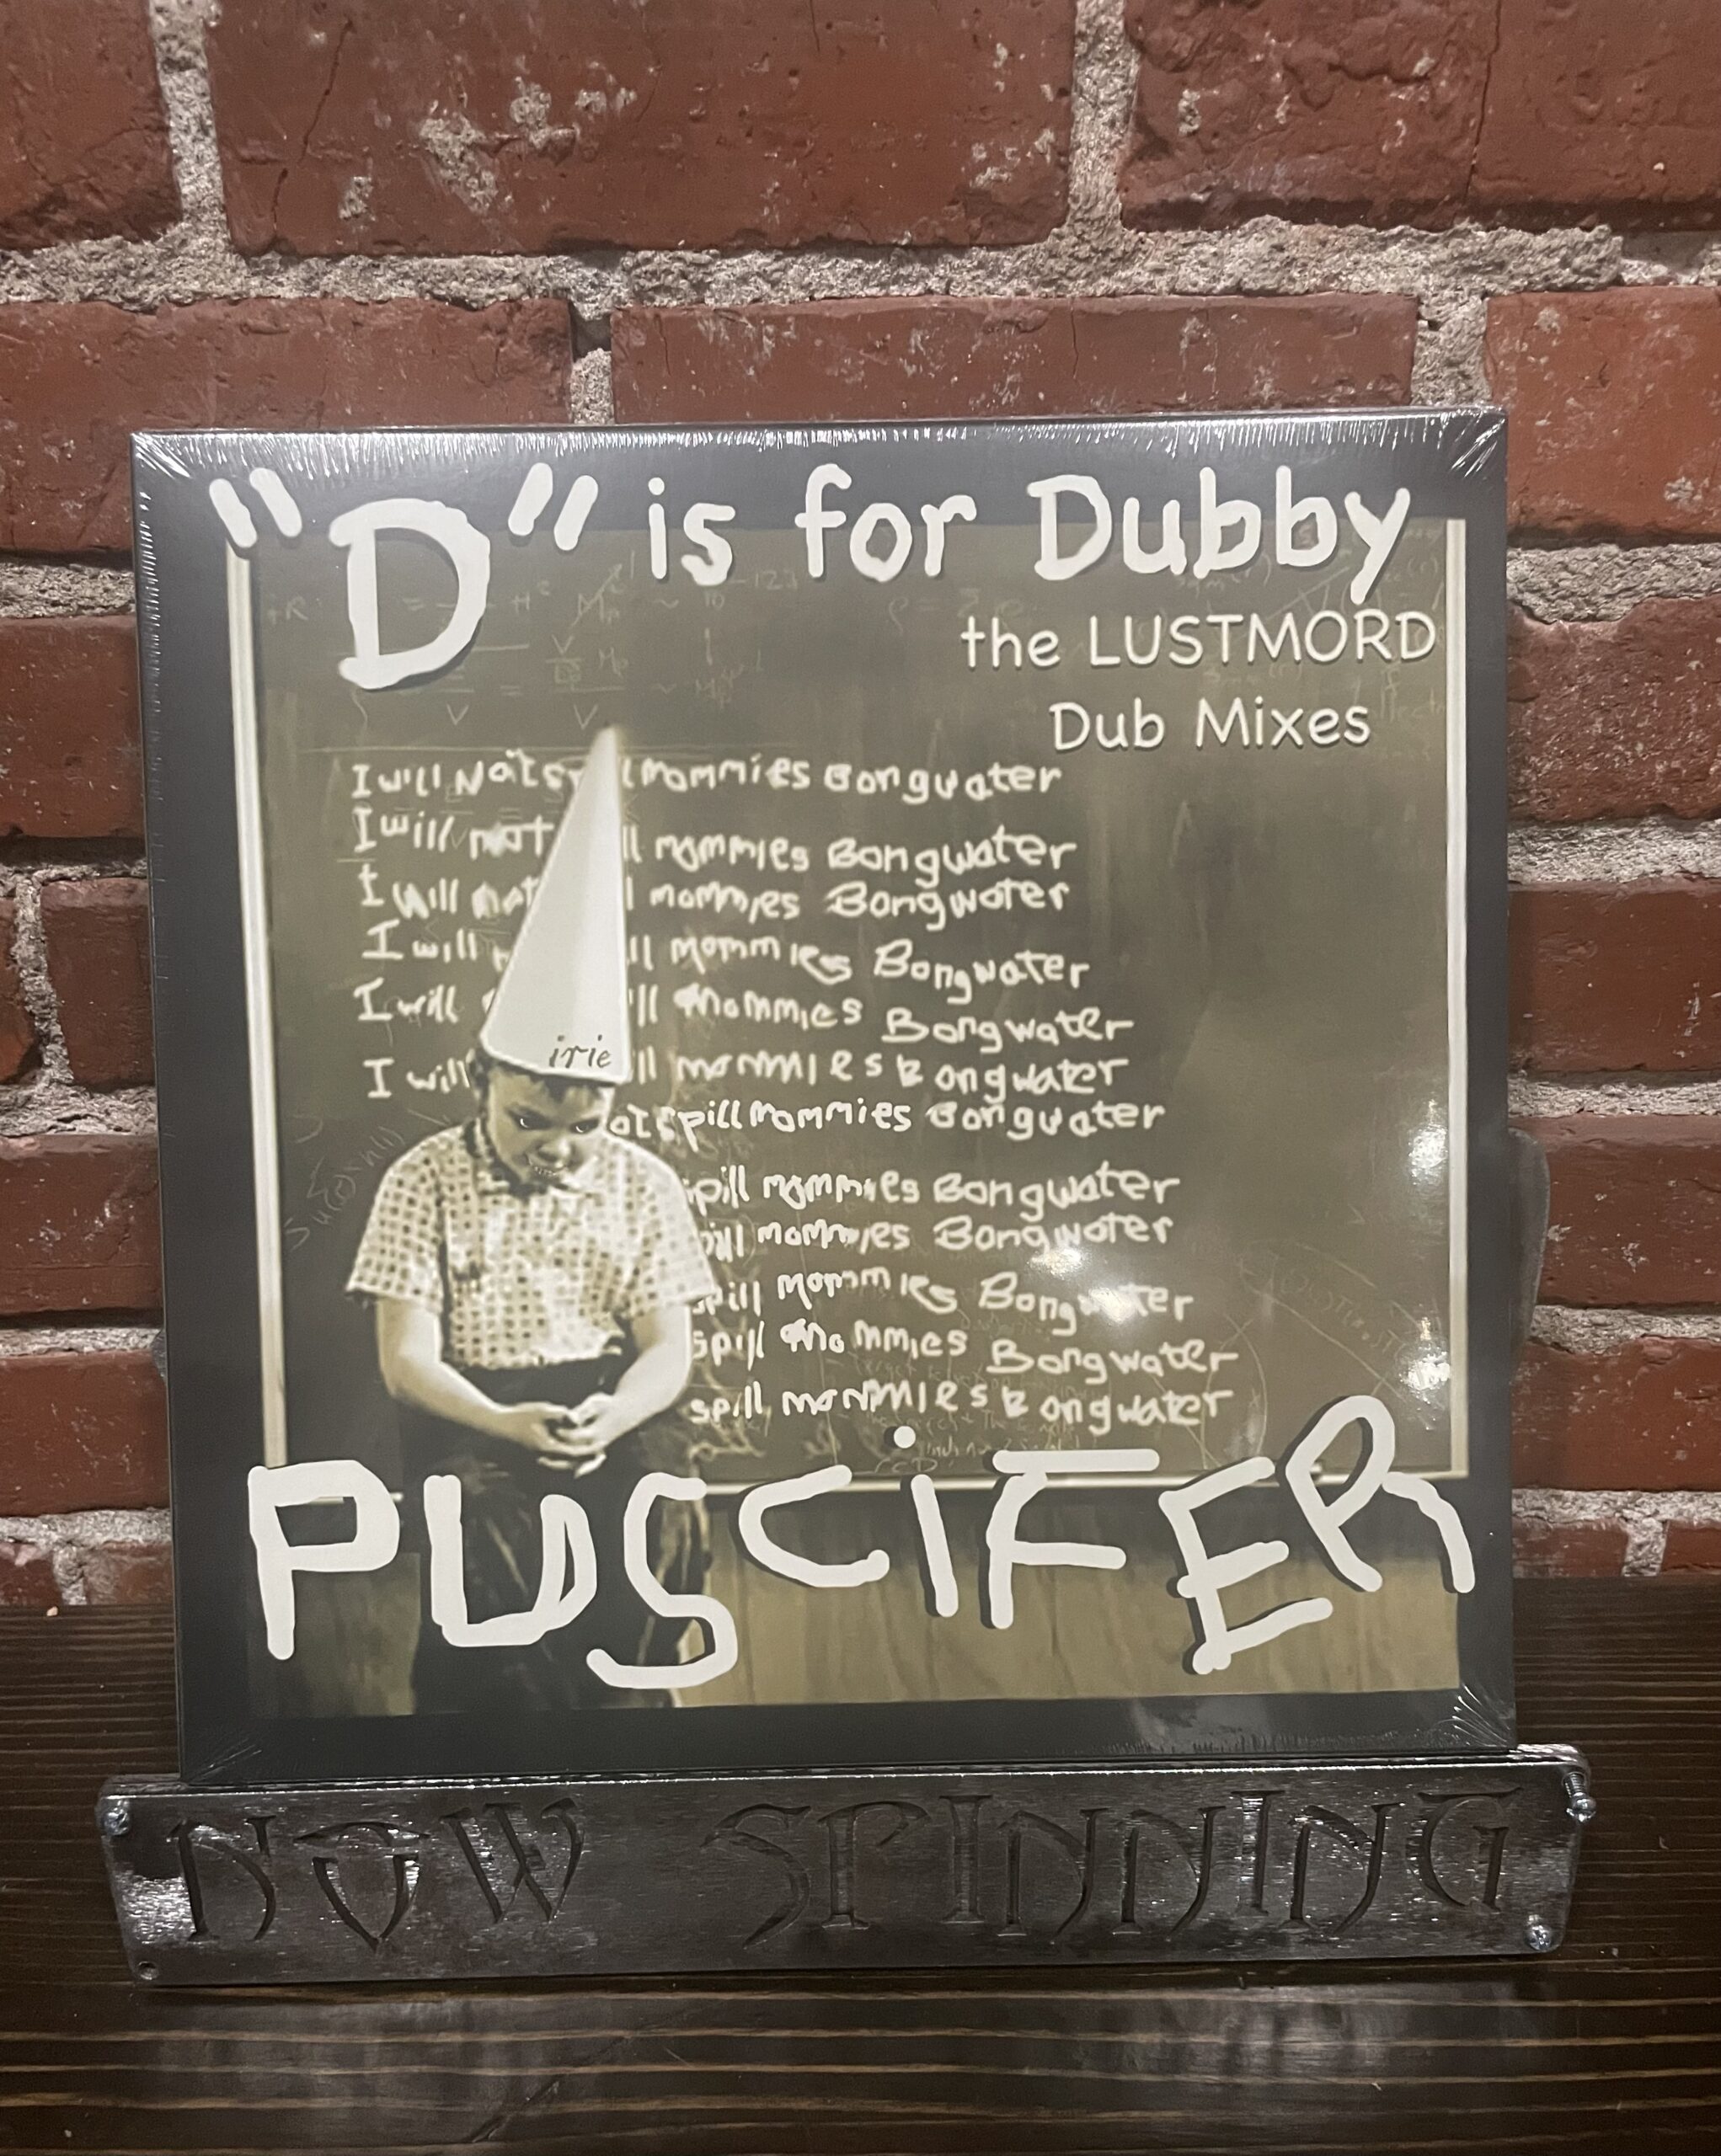 "D" is for Dubby
the LUSTMORD
Dub Mixes
I will Not mommies Bongwater
I will not mommies Bongwater
I will not mommies Bongwater
I will mommies Bongwater
I will mommies Bongwater
I will mommies Bongwater
spill mommies Bongwater
spill mommies Bongwater
mommies Bongwater
spill mommies Bongwater
spill mommies Bongwater
spill mommies Bongwater
irie
PUSCiFER
NOW SPINNING